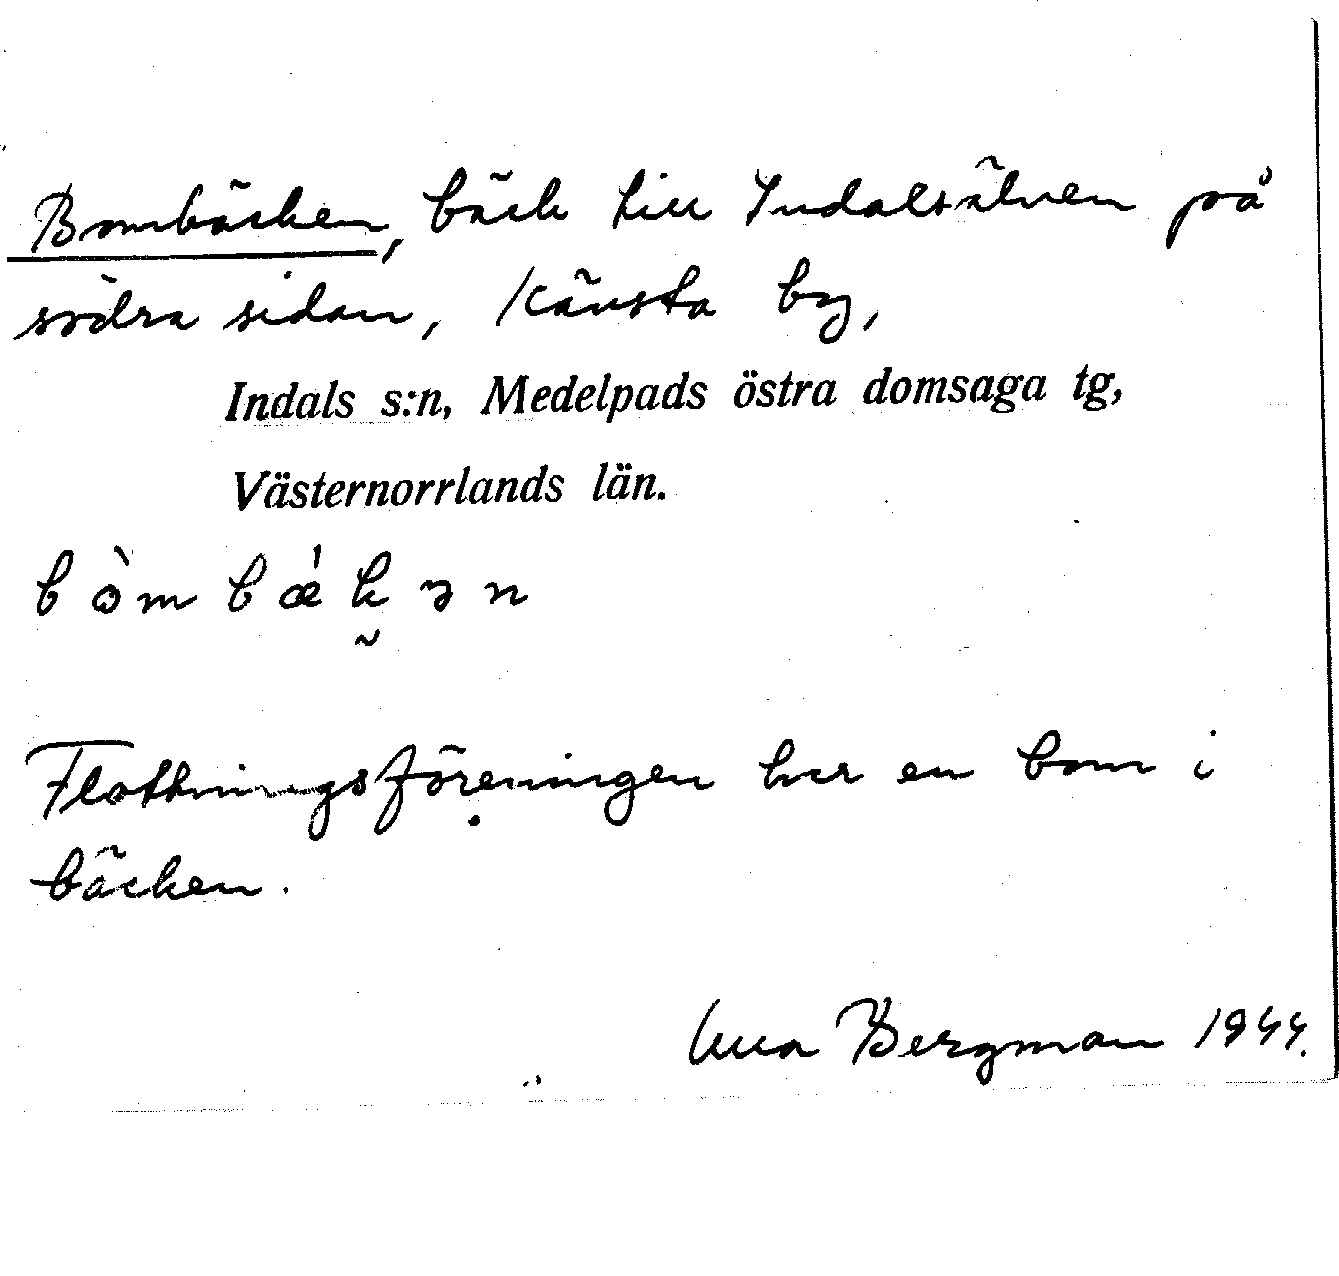 Bombäcken, bäck till Indalsälven på
södra sidan, Kävsta by,
Indals s:n, Medelpads östra domsaga tg,
Västernorrlands län.
bòmbǽk̰ən
Flottningsföreningen har en bom i
bäcken.
Bergman 1944.